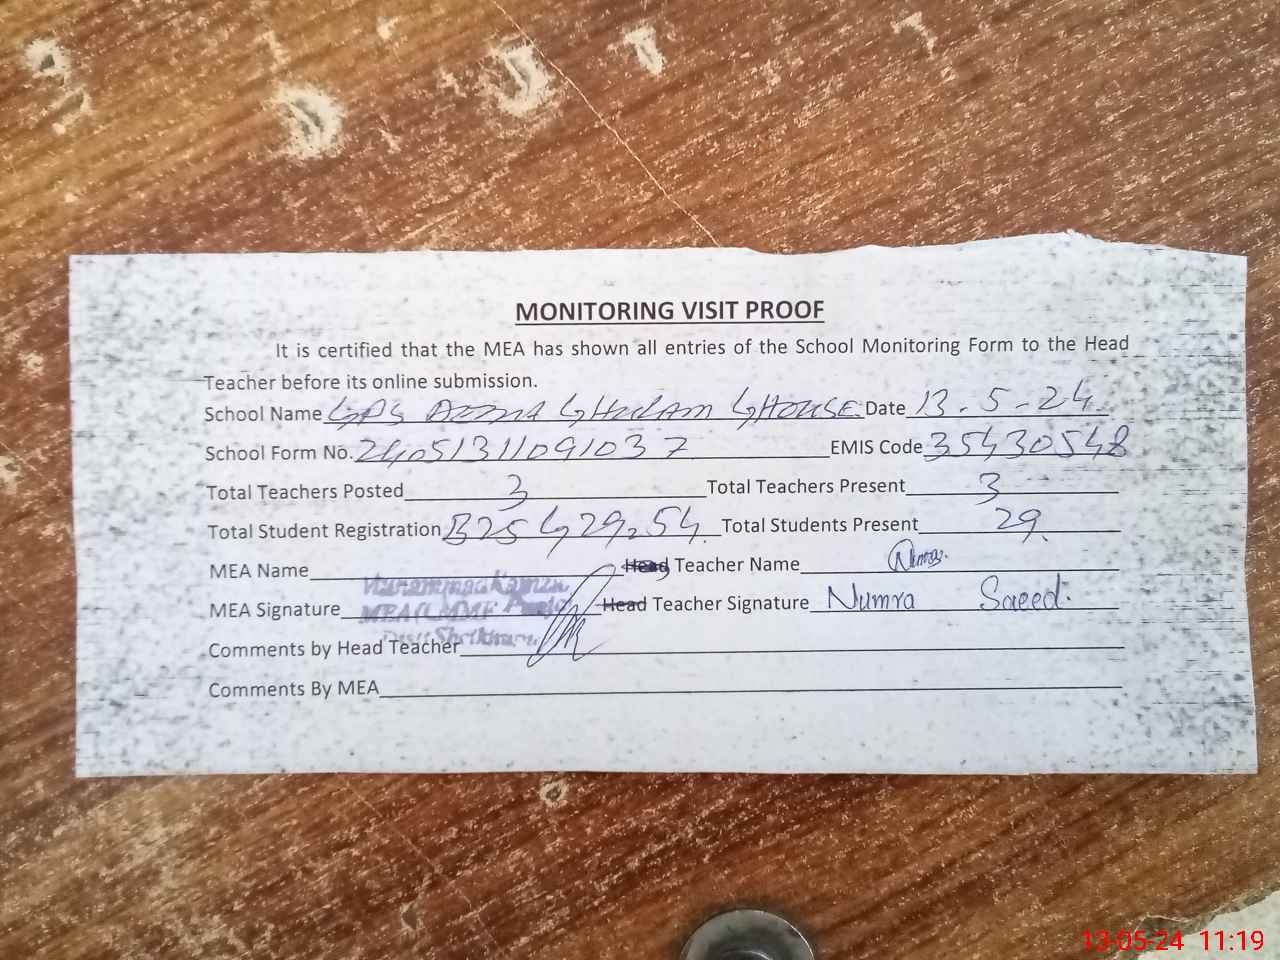 MONITORING VISIT PROOF
It is certified that the MEA has shown all entries of the School Monitoring Form to the Head
Teacher before its online submission.
School Name GPS GHULAM GHOUSE Date 13.5-24
School Form No. 24051311091037 EMIS Code 35430548
Total Teachers Posted 3 Total Teachers Present 3
Total Student Registration B25 G29=54 Total Students Present 29
MEA Name Head Teacher Name
MEA Signature Head Teacher Signature Numra Saeed.
Comments by Head Teacher
Comments By MEA
13-05-24 11:19